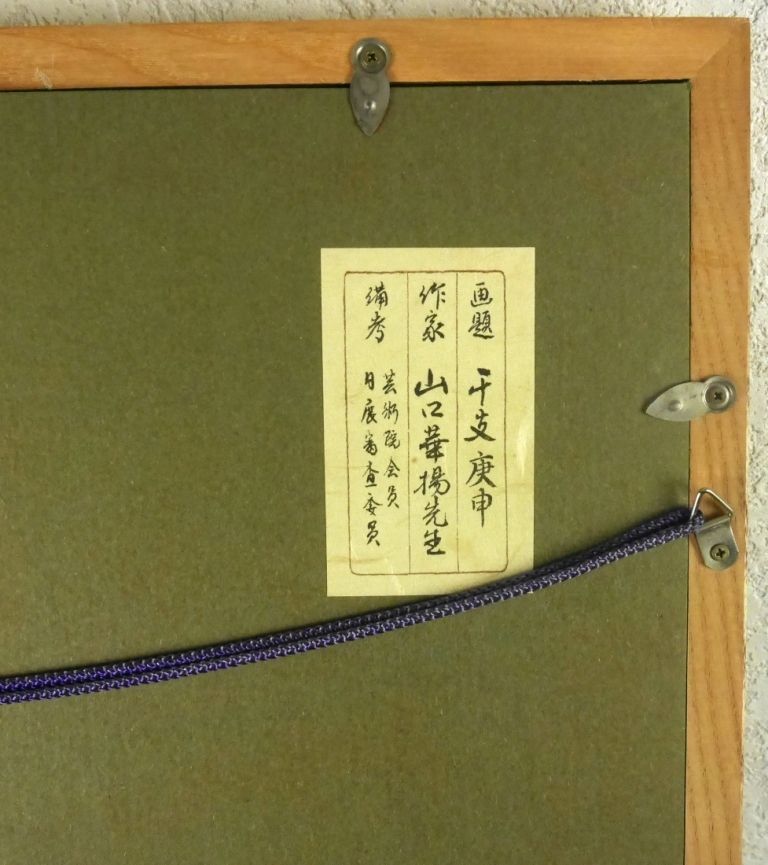 画題 干支庚申
作家 山口華揚先生
備考 芸術院会員
日展審査委員